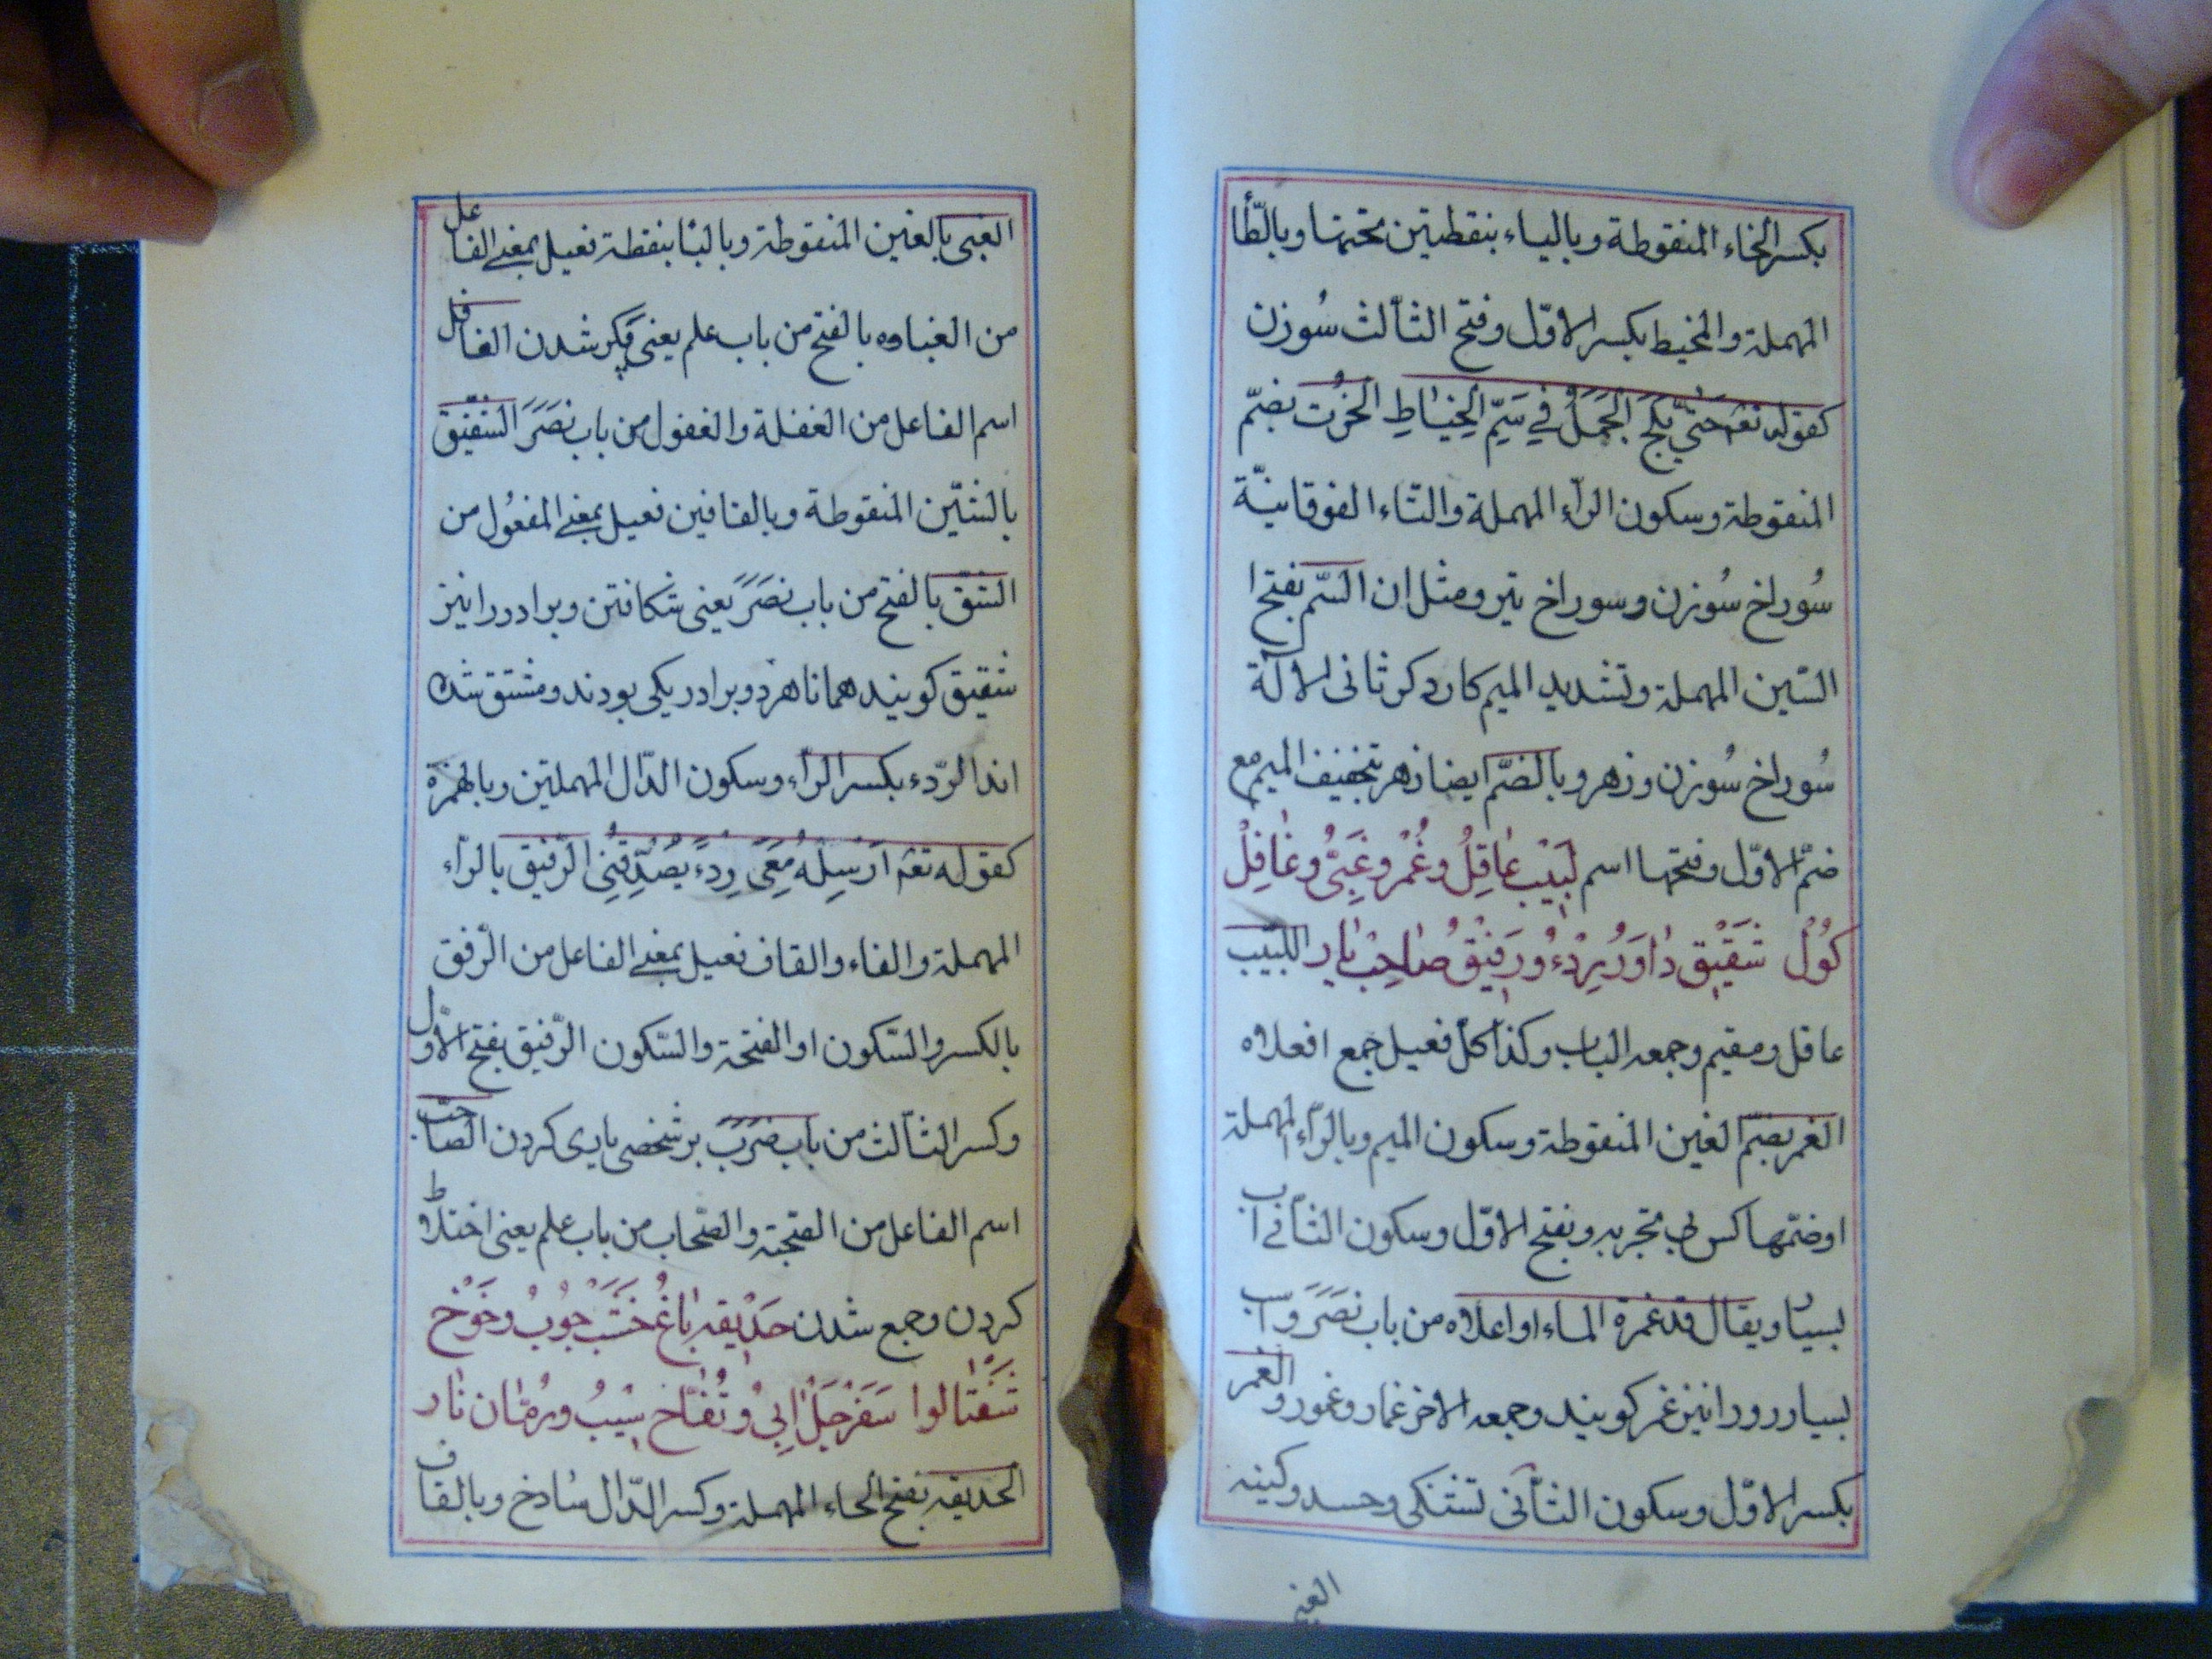 بكسر الخاء المنقوطة وبالياء بنقطتين تحتها وبالطّا
المهملة والمخيط بكسر الاوّل وفتح الثالث سُوزن
كقوله تعم حَتّى يَلجَ الجَمَلُ في سَمِّ الخِياطِ الخُرت بضمّ
المنقوطة وسكون الرّاء المهملة والتاء الفوقانيّة
سُوراخ سُوزن وسوراخ تبر ومثل ان السّم بفتح ا
السّين المهملة وتشديد الميم كارد كر ثانى لالالة
سُوراخ سُوزن وزهر وبالضمّ ايضا زهر بتخفيف الميم مع
ضمّ الاوّل وفتحها اسم لَبيْب عٰاقِلُ وغُمْر وغَبِىُّ وغٰافِلْ
كَوُلْ شَقيْق دٰاوَرُ رِدْءُ ورَفيْقْ صٰاحِبْ يٰار اللّبيب
عاقل ومقيم وجمعه الباب وكذا كلّ فعيل جمع افعلاه
الغمر بضمّ الغين المنقوطة وسكون الميم وبالرّاء المهملة
اوضمّها كس بى تجربه وبفتح الاوّل وسكون الثانى اب
بسيار ويقال قد غمرة الماء او اعلاه من باب نَصَرَ واسب
بسيار رو را نيز غمر كويند وجمعه الاخر غمار وغمور والغمر
بكسر الاوّل وسكون الثّانى تشنكى وحسد وكينه
الغبى
الغبى بالغين المنقوطة وبالبا بنقطة فعيل بمعنى الفاعل
من الغباوه بالفتح من باب علم يعنى شدن الغافل
اسم الفاعل من الغفلة والغفول من باب نَصَرَ الشقيق
بالشّين المنقوطة وبالقافين فعيل بمعنى المفعُول من
الشّق بالفتح من باب نصَرَ يعنى شكافتن وبرادر را نيز
شقيق كويند همانا هر دو برادر يكى بودند ومشتق شده
اند الرّدء بكسر الرّاء وسكون الدّال المهملتين وبالهمزة
كقوله تعم اَرْسِلهُ مَعى رِدءً يُصَدِّقنِى الرّفيق بالرّاء
المهملة والفاء والقاف فعيل بمعنى الفاعل من الرّفق
بالكسر والسّكون او الفتحة والسّكون الرّفيق بفتح الاوّل
وكسر الثالث من باب ضَرَبَ بر شخصى يارى كردن الصّاحب
اسم الفاعل من الصّحبة والصّحاب من باب علم يعنى اختلاط
كردن وجمع شدن حَديْقه بٰاغُ خَشَبْ چوُبْ وخَوْخ
شَفْتالوا سَفَرْجَلْ ابى وتُفّاح سيْبُ ورُمّان نٰار
الحديقه بفتح الحاء المهملة وكسر الدّال سٰادخ وبالقاف